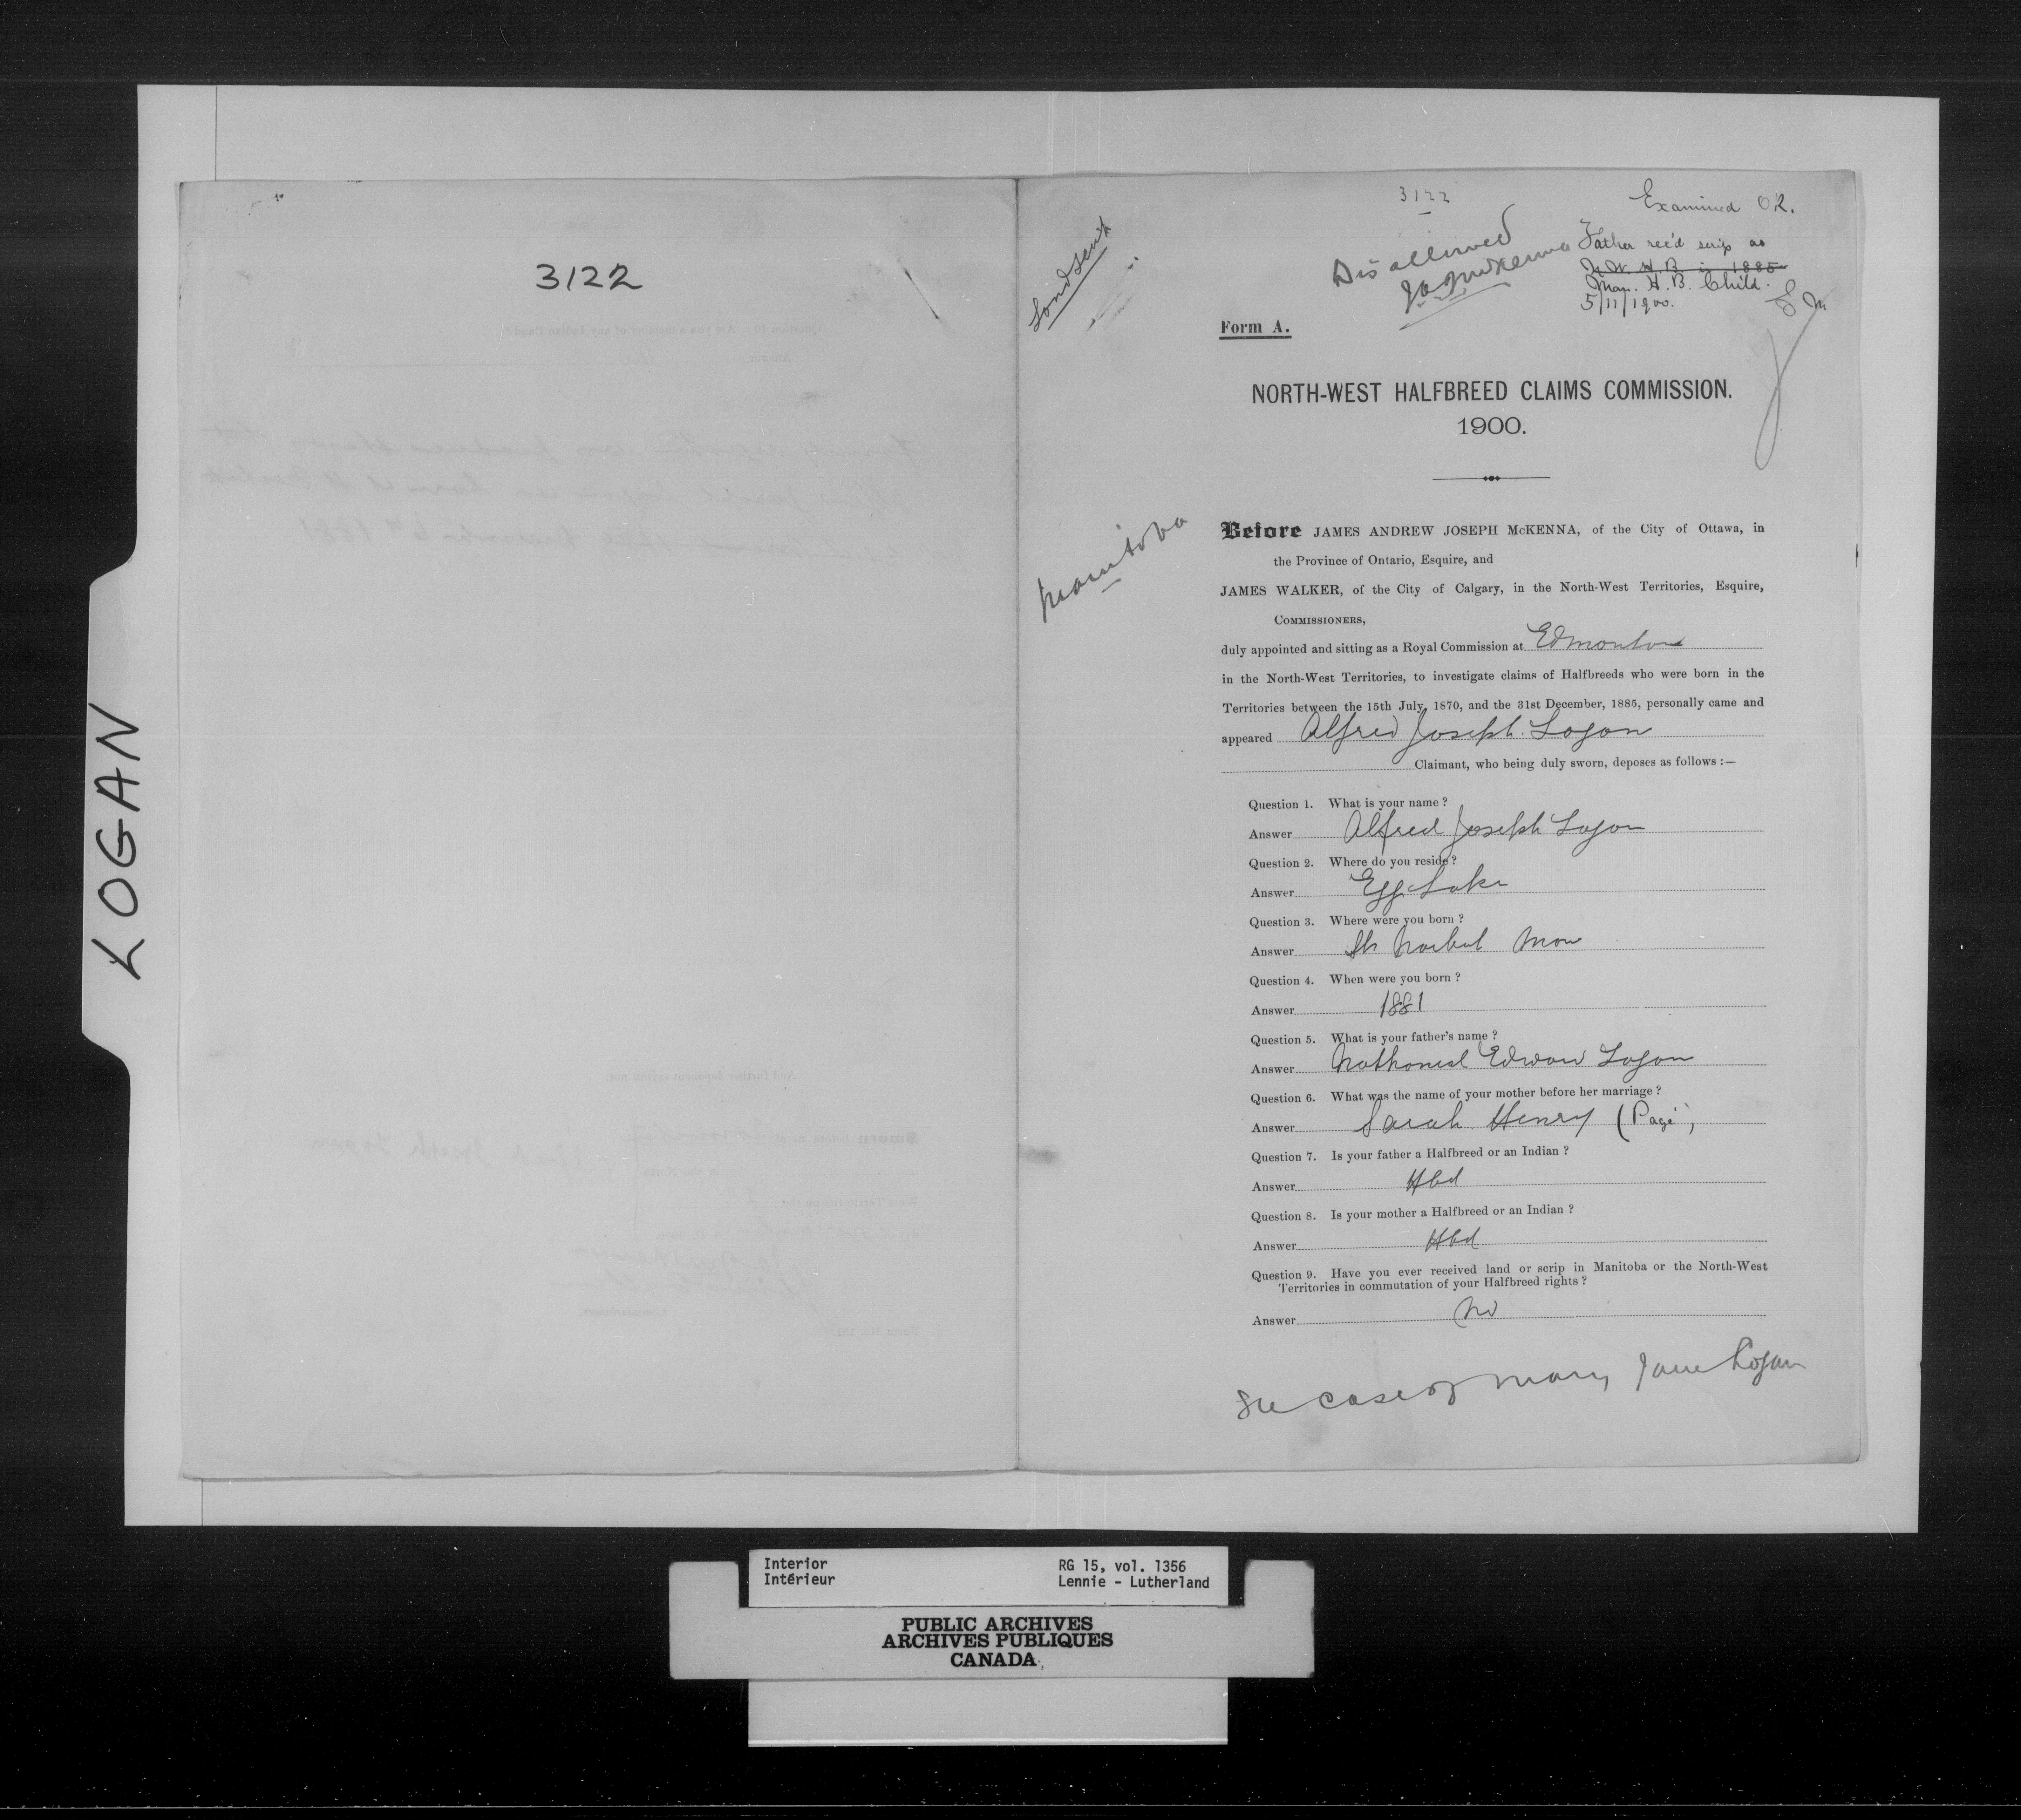 LOGAN
3122
3122
Examined OK.
Disallowed
JAJMcKenna
Father rec'd scrip as
N.W. H.B. in 1885
Man. H.B. Child.
5/11/1900.
Form A.
NORTH-WEST HALFBREED CLAIMS COMMISSION.
1900.
Manitoba
Before JAMES ANDREW JOSEPH McKENNA, of the City of Ottawa, in
the Province of Ontario, Esquire, and
JAMES WALKER, of the City of Calgary, in the North-West Territories, Esquire,
COMMISSIONERS,
duly appointed and sitting as a Royal Commission at Edmonton
in the North-West Territories, to investigate claims of Halfbreeds who were born in the
Territories between the 15th July, 1870, and the 31st December, 1885, personally came and
appeared Alfred Joseph Logan
Claimant, who being duly sworn, deposes as follows :—
Question 1. What is your name ?
Answer Alfred Joseph Logan
Question 2. Where do you reside ?
Answer Egg Lake
Question 3. Where were you born ?
Answer St Norbert Man
Question 4. When were you born ?
Answer 1881
Question 5. What is your father's name ?
Answer Nathaniel Edward Logan
Question 6. What was the name of your mother before her marriage ?
Answer Sarah Henry (Pagé)
Question 7. Is your father a Halfbreed or an Indian ?
Answer Hbd
Question 8. Is your mother a Halfbreed or an Indian ?
Answer Hbd
Question 9. Have you ever received land or scrip in Manitoba or the North-West
Territories in commutation of your Halfbreed rights ?
Answer No
See case of Mary Jane Logan
Interior
Intérieur
RG 15, vol. 1356
Lennie - Lutherland
PUBLIC ARCHIVES
ARCHIVES PUBLIQUES
CANADA